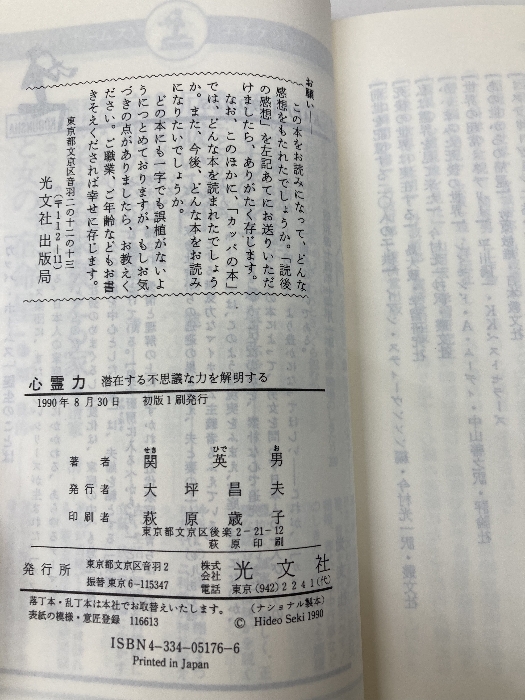 お願い――
この本をお読みになって、どんな
感想をもたれたでしょうか。「読後
の感想」を左記あてにお送りいただ
けましたら、ありがたく存じます。
なお、このほかに、「カッパの本」
では、どんな本を読まれたでしょう
か。また、今後、どんな本をお読み
になりたいでしょうか。
どの本にも一字でも誤植がないよ
うにつとめておりますが、もしお気
づきの点がありましたら、お教えく
ださい。ご職業、ご年齢などもお書
きそえくだされば幸せに存じます。
東京都文京区音羽二の十二の十三
(〒112―11)
光文社 出版局
心霊力 潜在する不思議な力を解明する
1990年8月30日 初版1刷発行
せき ひで お
著者 関英男
発行者 大坪昌夫
印刷者 萩原歳子
東京都文京区後楽2-21-12
萩原印刷
発行所 東京都文京区音羽2 株式会社 光文社
振替東京6-115347 電話 東京(942)2241(代)
落丁本・乱丁本は本社でお取替えいたします。 (ナショナル製本)
表紙の模様・意匠登録 116613 © Hideo Seki 1990
ISBN4-334-05176-6
Printed in Japan